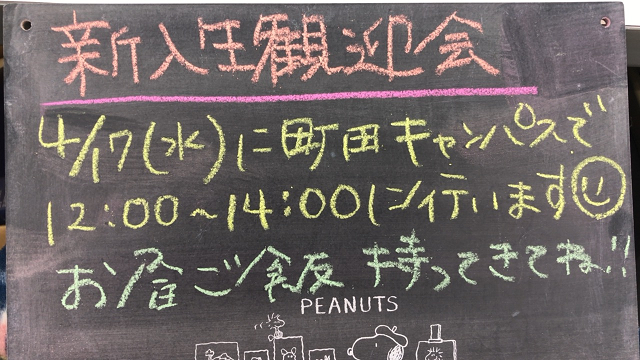 新入生観迎会
4/17(水)に町田キャンパスで
12:00~14:00に行います
お昼ご飯 持ってきてね!!
PEANUTS